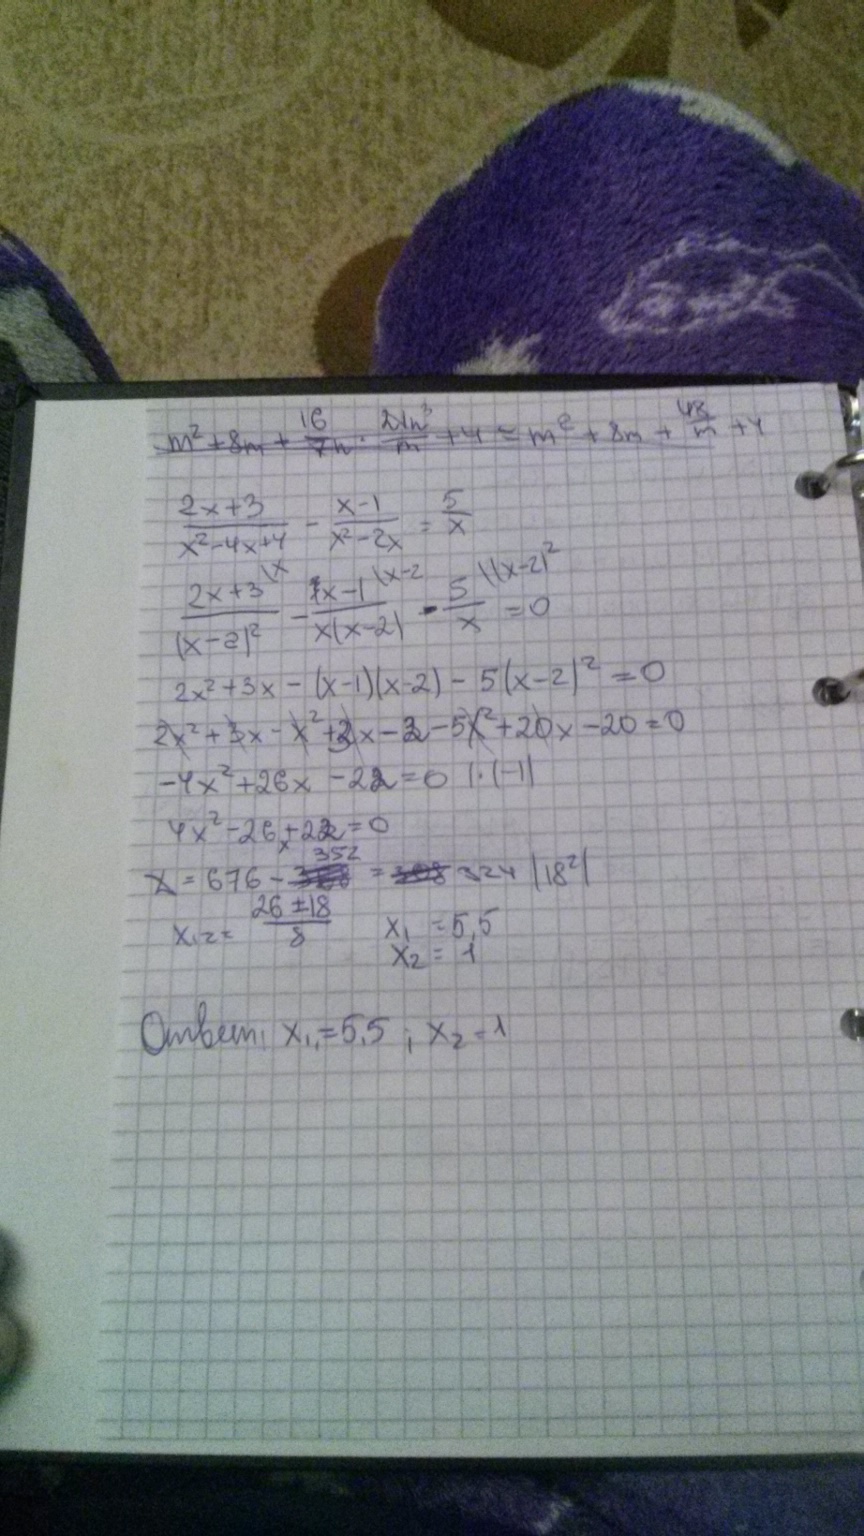 m² + 8m + 16/7n · 21n³/m + 4 = m² + 8m + 48/m + 4
(2x+3)/(x²-4x+4) - (x-1)/(x²-2x) = 5/x
(2x+3)/(x-2)² \x - (x-1)/(x(x-2)) \x-2 - 5/x \(x-2)² = 0
2x² + 3x - (x-1)(x-2) - 5(x-2)² = 0
2x² + 3x - x² + 3x - 2 - 5x² + 20x - 20 = 0
-4x² + 26x - 22 = 0 |·(-1)
4x² - 26x + 22 = 0
x = 676 - 352 = 324 |18²|
x₁,₂ = (26 ± 18)/8 x₁ = 5,5
x₂ = 1
Ответ: x₁ = 5,5 ; x₂ = 1